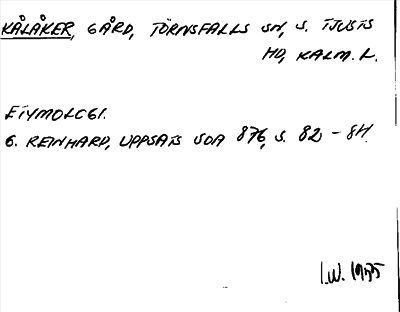 KÅLÅKER, GÅRD, TÖRNSFALLS SN, S. TJUSTS
HD, KALM. L.
ETYMOLOGI.
G. REINHARD, UPPSATS SOA 876, S. 82 - 84.
I.W. 1975